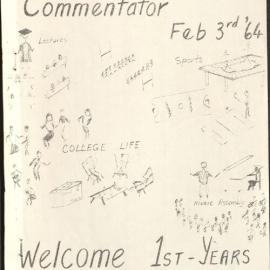 Commentator
Feb 3rd '64
Lectures
Sports
COLLEGE LIFE
Welcome 1ST-YEARS